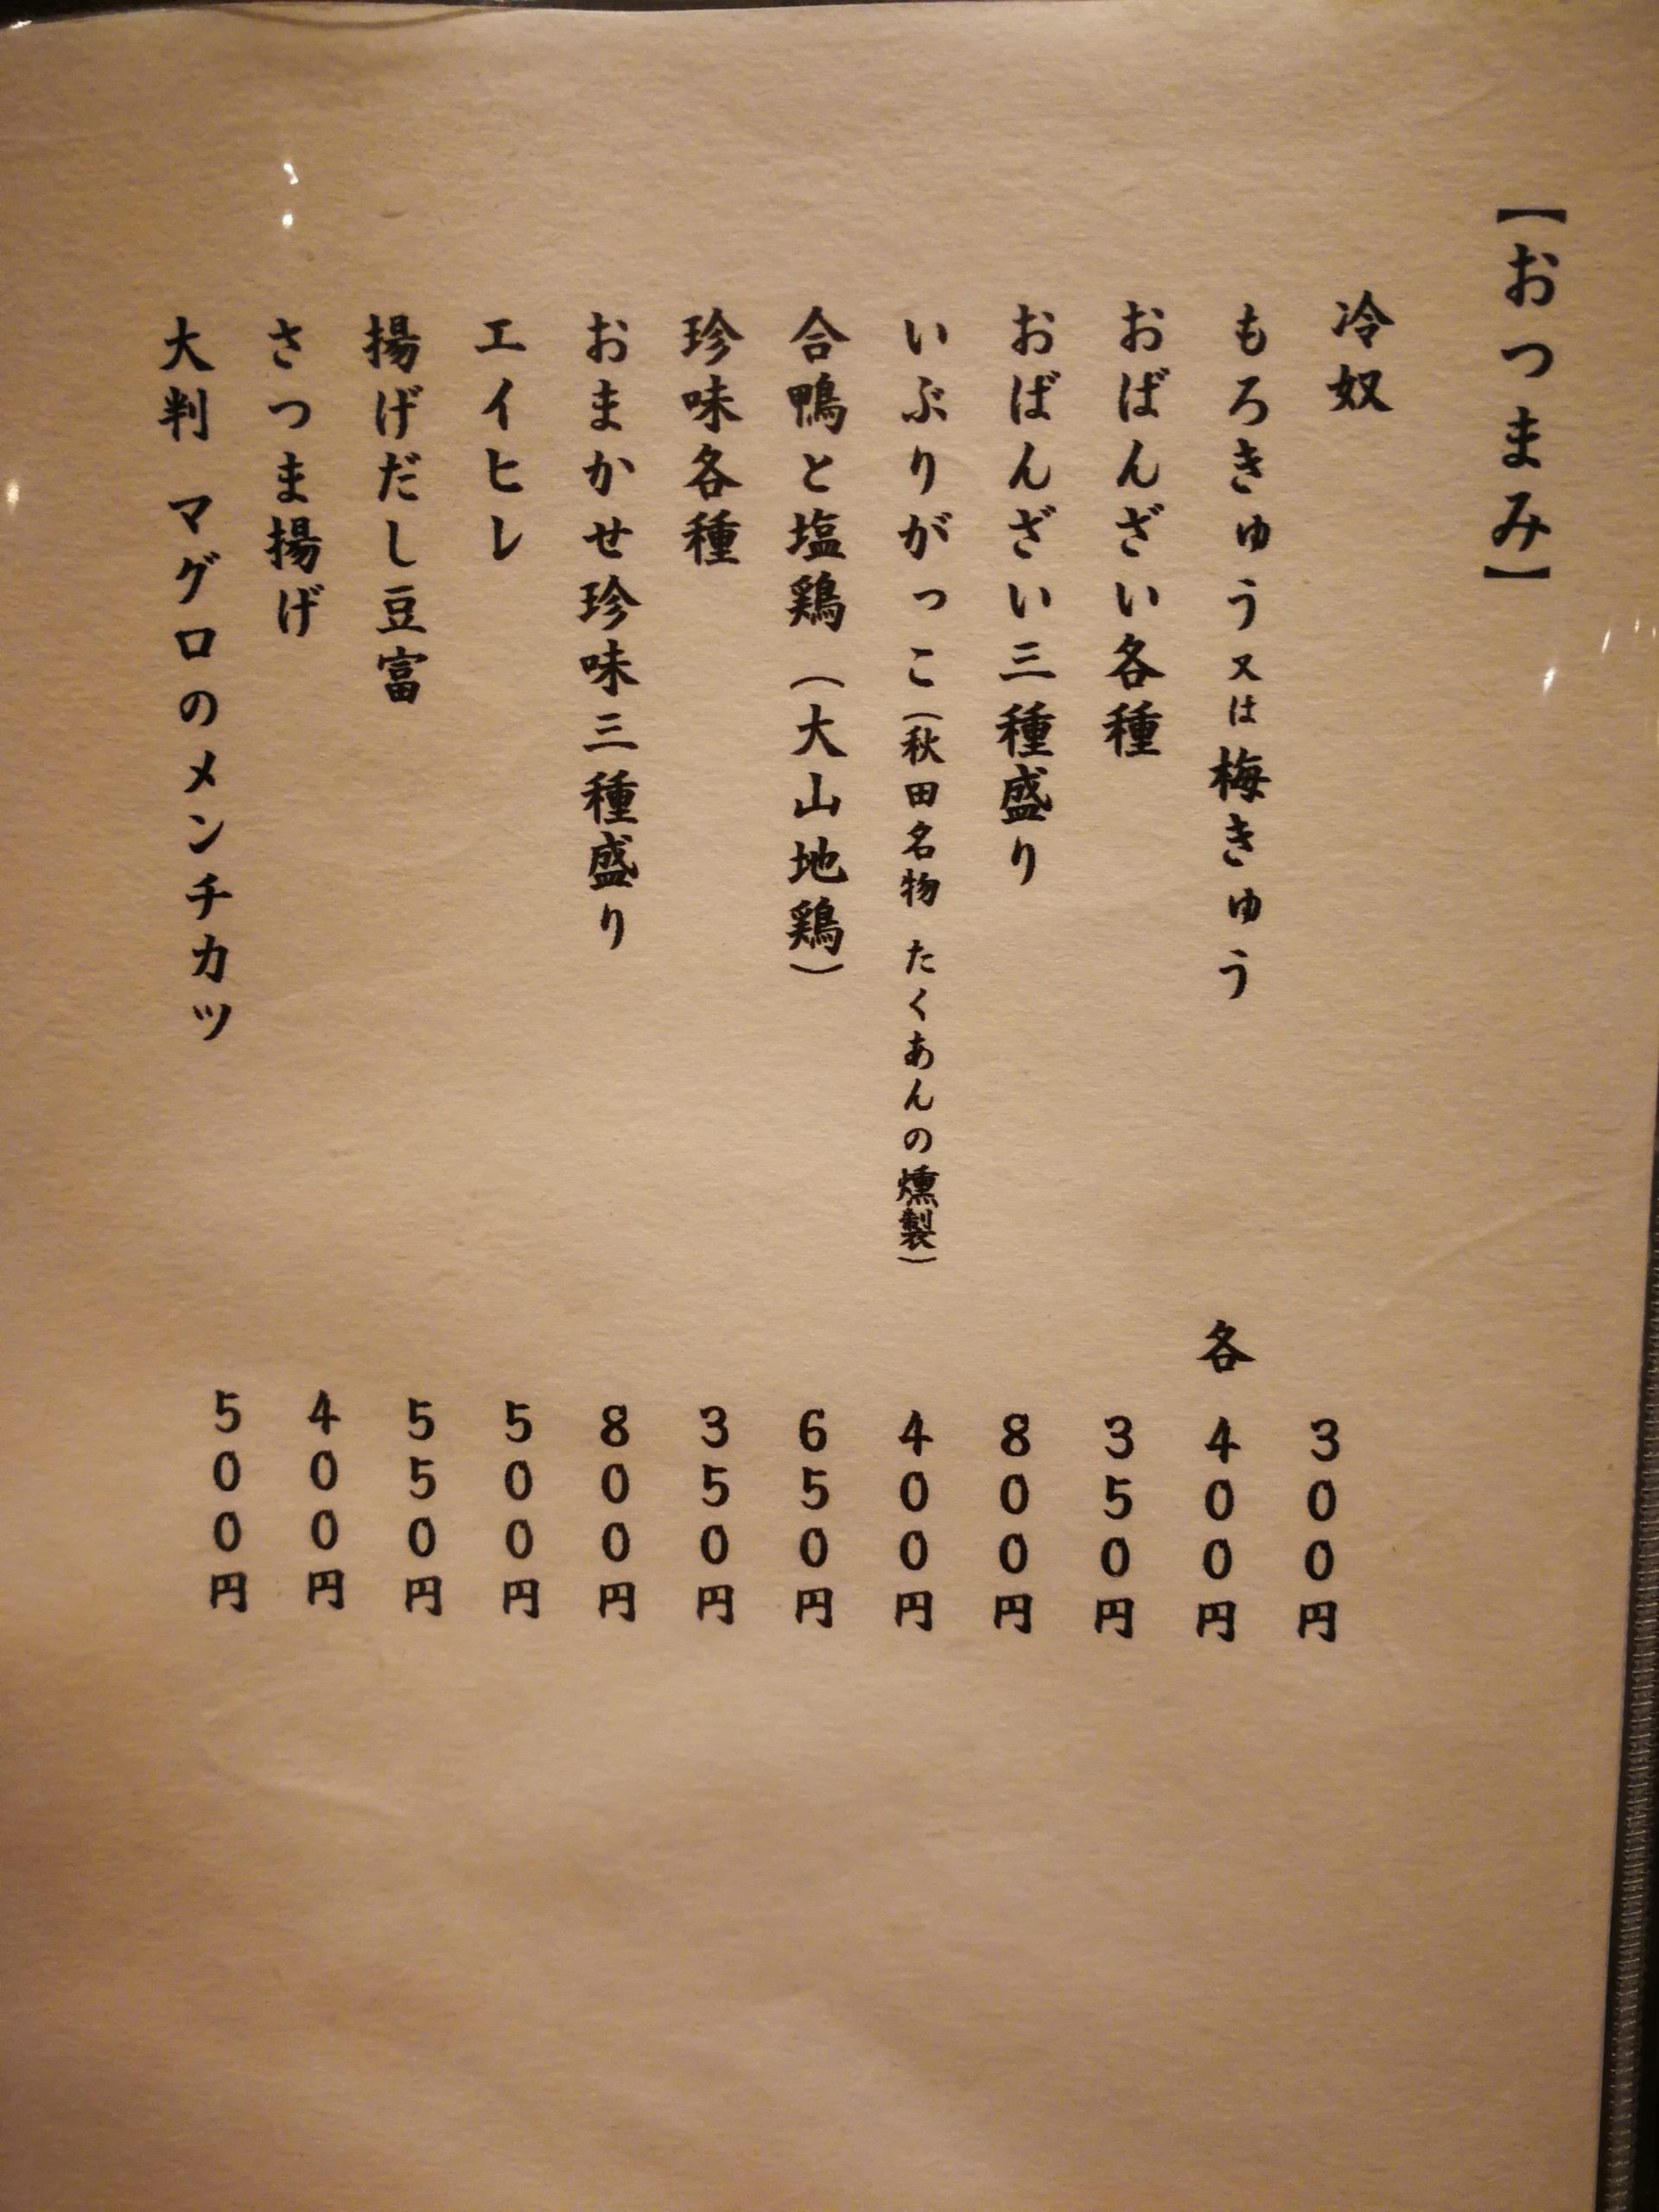 【おつまみ】
冷奴 300円
もろきゅう又は梅きゅう 各400円
おばんざい各種 350円
おばんざい三種盛り 800円
いぶりがっこ(秋田名物 たくあんの燻製) 400円
合鴨と塩鶏(大山地鶏) 650円
珍味各種 350円
おまかせ珍味三種盛り 800円
エイヒレ 500円
揚げだし豆富 550円
さつま揚げ 400円
大判 マグロのメンチカツ 500円